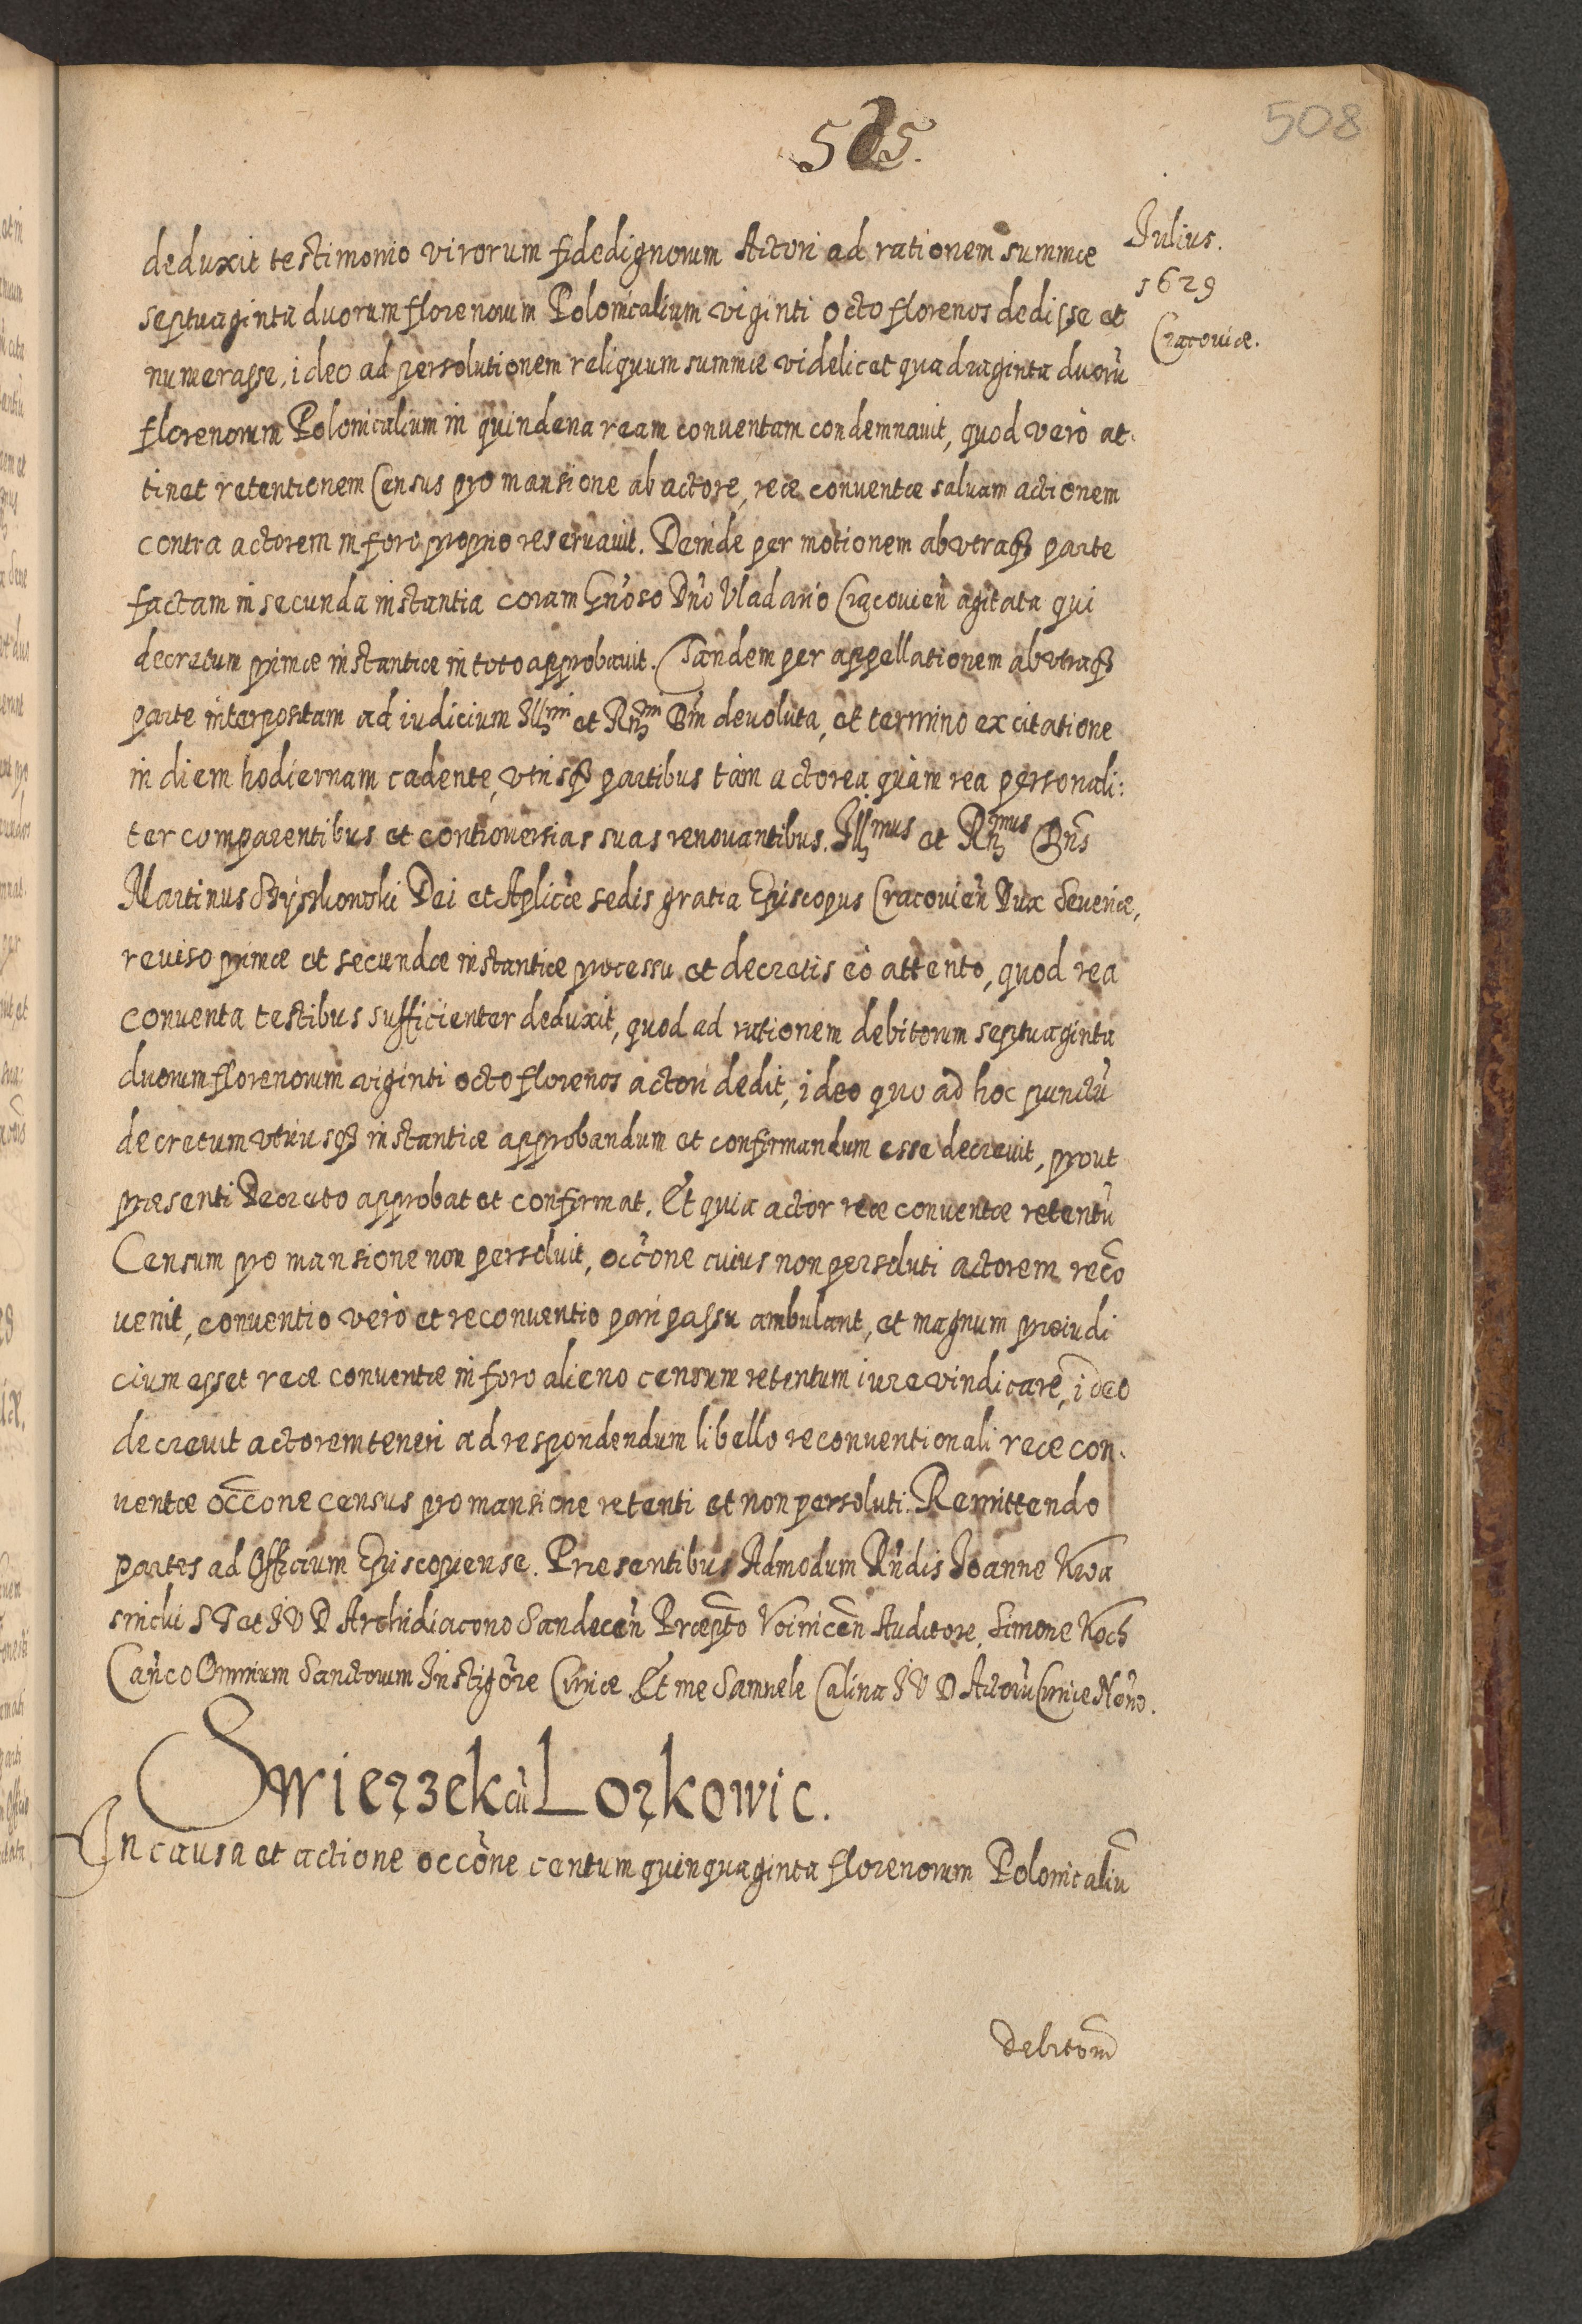 505.
508
Iulius.
1629
Cracouiæ.
deduxit testimonio virorum fidedignorum Actori ad rationem summæ
septuaginta duorum florenorum Polonicalium viginti octo florenos dedisse et
numerasse, ideo ad persolutionem reliquum summæ videlicet quadraginta duorũ
florenorum Polonicalium in quindena ream conventam condemnauit, quod verò at-
tinet retentionem Census pro mansione ab actore, reæ conventæ saluam actionem
contra actorem in foro proprio reseruauit. Deinde per motionem ab vtraq3 parte
factam in secunda instantia coram Gñoso Dño Vladario Cracouieñ agitata qui
decretum primæ instantiæ in toto approbauit. Tandem per appellationem ab vtraq3
parte interpositam ad iudicium Illmi et Rñdmi Dñi devoluta, et termino ex citatione
in diem hodiernam cadente, vtrisq3 partibus tàm actorea quàm rea personali:
ter comparentibus et controuersias suas renouantibus. Illmus et Rñdmus Dñs
Martinus Szyszkowski Dei et Aplicæ sedis gratia Episcopus Cracouieñ Dux Seueriæ,
reviso primæ et secundæ instantiæ processu et decretis eò attento, quod rea
conventa testibus sufficienter deduxit, quod ad rationem debitorum septuaginta
duorum florenorum viginti octo florenos actori dedit, ideo quo ad hoc punctũ
decretum vtriusq3 instantiæ approbandum et confirmandum esse decreuit, prout
præsenti Decreto approbat et confirmat. Et quia actor reæ conventæ retentũ
Censum pro mansione non persoluit, occõne cuius non persoluti actorem recõ
uenit, conventio verò et reconventio pari passu ambulant, et magnum præiudi
cium esset reæ conventæ in foro alieno censum retentum iure vindicare, ideo
decreuit actorem teneri ad respondendum libello reconventionali reæ con-
uentæ occõne census pro mansione retenti et non persoluti. Remittendo
partes ad Officium Episcopiense. Præsentibus Admodum Rñdis Ioanne Kwa
snicki S T et I V D Archidiacono Sandeceñ Præpto Voinicen Auditore, Simone Koch
Canco Omnium Sanctorum Instigõre Curiæ Et me Samuele Calina I V D Actorũ Curiæ Nõrio.
Swierzek cũ Lorkowic.
In causa et actione occõne centum quinquaginta florenorum Polonicaliũ
debitorum